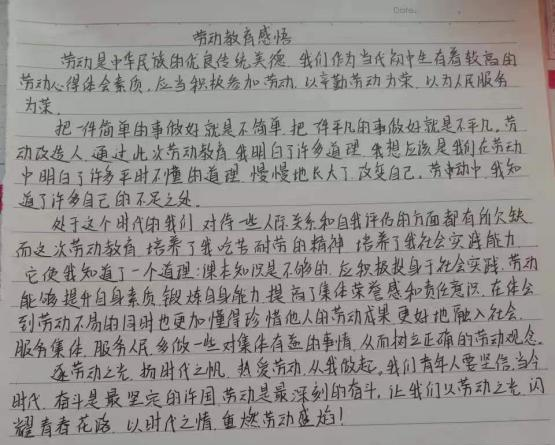 Date.
劳动教育感悟
劳动是中华民族的优良传统美德，我们作为当代初中生有着较高的
劳动心得体会素质，应当积极参加劳动，以辛勤劳动为荣，以为人民服务
为荣。
把一件简单的事做好就是不简单，把一件平凡的事做好就是不平凡。劳
动改造人，通过此次劳动教育，我明白了许多道理，我想应该是我们在劳动
中明白了许多平时不懂的道理，慢慢地长大了，改变自己。劳动中，我知
道了许多自己的不足之处。
处于这个时代的我们，对待一些人际关系和自我评估的方面都有所欠缺
而这次劳动教育，培养了我吃苦耐劳的精神，培养了我社会实践能力，
它使我知道了一个道理：课本知识是不够的，应积极投身于社会实践，劳动
能够提升自身素质，锻炼自身能力，提高了集体荣誉感和责任意识，在体会
到劳动不易的同时也更加懂得珍惜他人的劳动成果，更好地融入社会，
服务集体，服务人民，多做一些对集体有益的事情，从而树立正确的劳动观念。
逐劳动之光，扬时代之帆，热爱劳动，从我做起。我们青年人要坚信，当今
时代，奋斗是最坚定的许国，劳动是最深刻的奋斗，让我们以劳动之光，闪
耀青春花路，以时代之情，重燃劳动盛焰！